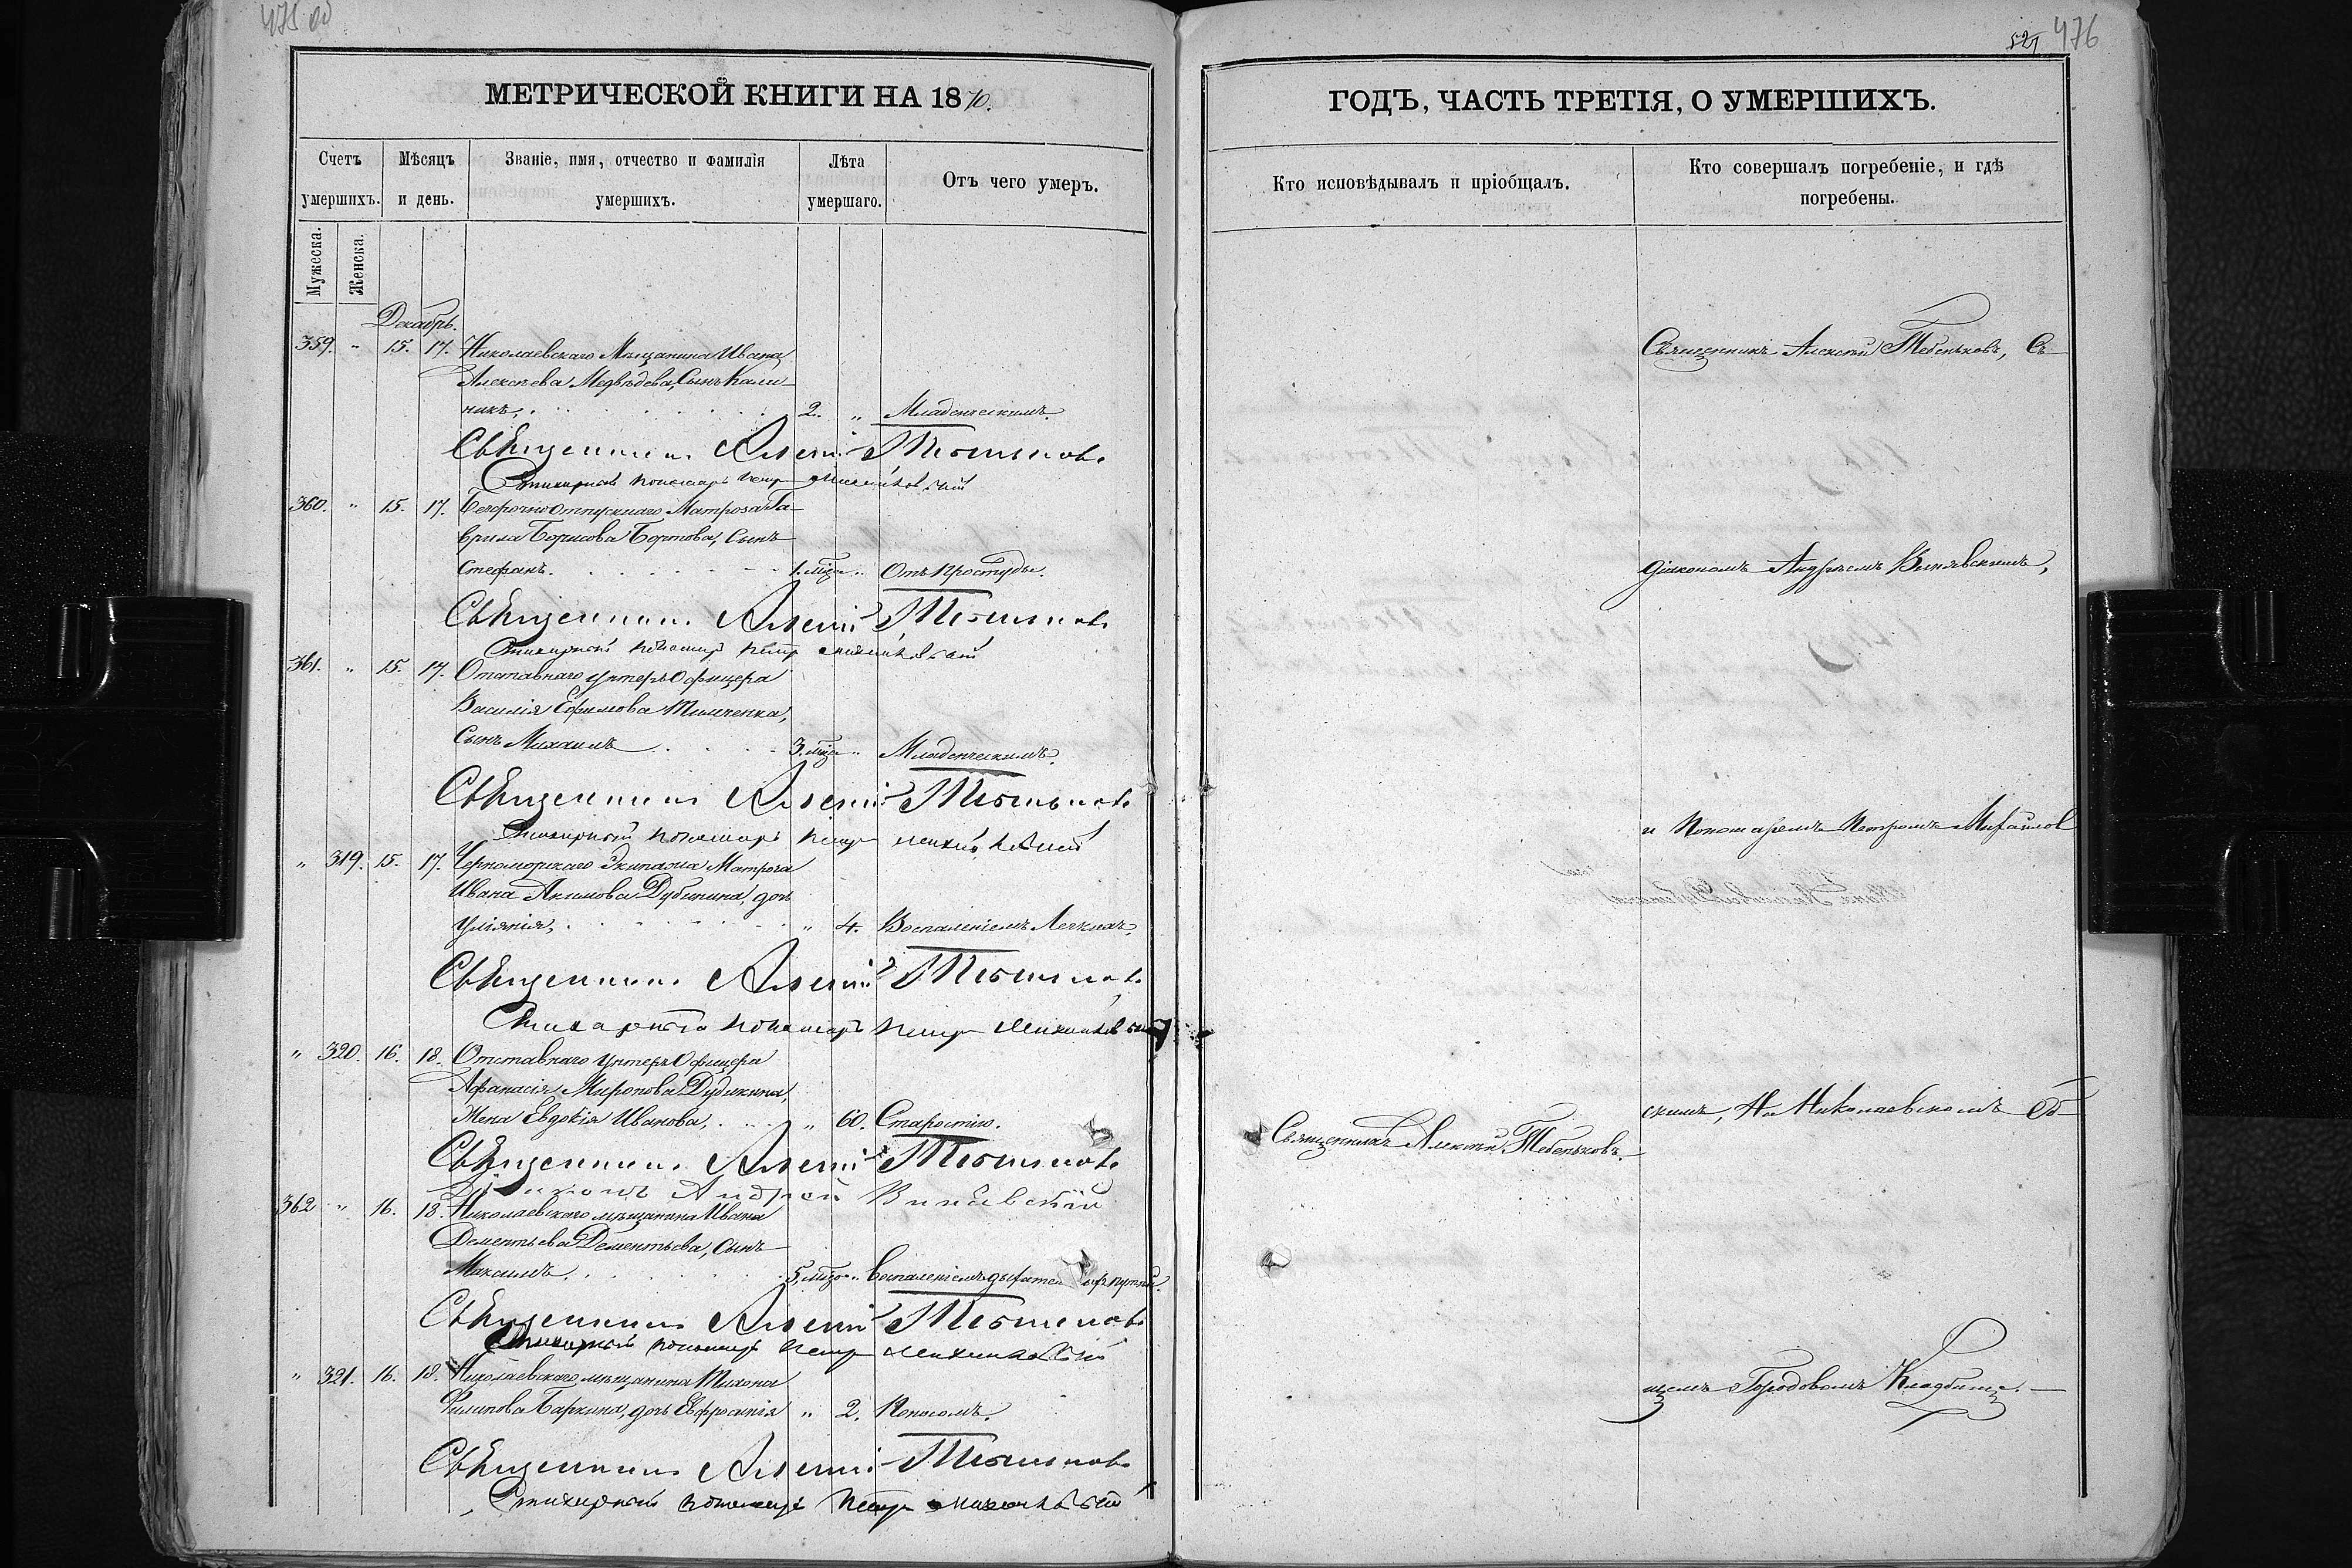 475 об
МЕТРИЧЕСКОЙ КНИГИ НА 1870.
Счетъ умершихъ.
Мѣсяцъ и день.
Званіе, имя, отчество и фамилія умершихъ.
Лѣта умершаго.
Отъ чего умеръ.
Мужеска.
Женска.
Декабрь.
359. „ 15. 17. Николаевскаго Мѣщанина Ивана
Алексѣева Медвѣдева, Сынъ Кали-
никъ, 2. „ Младенческимъ.
Священникъ Алексій Тебеньковъ
Стихарный пономарь Петръ Михайловскій
360. „ 15. 17. Безсрочно Отпускнаго Матроза Га-
врила Борисова Бортова, Сынъ
Стефанъ. 1. мѣся „ Отъ Простуды.
Священникъ Алексій Тебеньковъ
Стихарный пономарь Петръ Михайловскій
361. „ 15. 17. Отставнаго Унтеръ Офицера
Василія Ефимова Тимченка,
Сынъ Михаилъ 3. мѣся „ Младенческимъ.
Священникъ Алексій Тебеньковъ
Стихарный пономарь Петръ Михайловскій
„ 319. 15. 17. Черноморскаго Экипажа Матроза
Ивана Акимова Дубинина, дочь
Уліянія, „ 4. Воспаленіемъ Легкихъ.
Священникъ Алексій Тебеньковъ
Стихарный пономарь Петръ Михайловскій
„ 320. 16. 18. Отставнаго Унтеръ Офицера
Афанасія Миронова Дудыкина,
Жена Евдокія Иванова, „ 60. Старостію.
Священникъ Алексій Тебеньковъ
Діаконъ Андрей Винявскій
362 „ 16. 18. Николаевскаго мѣщанина Ивана
Дементьева Дементьева, Сынъ
Максимъ. 5. мѣся „ Воспаленіемъ дыхател ыхъ путей.
Священникъ Алексій Тебеньковъ
Стихарный пономарь Петръ Михайловскій
„ 321. 16. 18. Николаевскаго мѣщанина Тихона
Филипова Баркина, дочь Евфросинія „ 2. Поносомъ.
Священникъ Алексій Тебеньковъ
Стихарный пономарь Петръ Михайловскій
521 476
ГОДЪ, ЧАСТЬ ТРЕТІЯ, О УМЕРШИХЪ.
Кто исповѣдывалъ и пріобщалъ.
Кто совершалъ погребеніе, и гдѣ
погребены.
Священникъ Алексѣй Тебеньковъ, Съ
діакономъ Андреемъ Винявскимъ,
и Пономаремъ Петромъ Михайлов
скимъ, На Николаевскомъ Об-
Священникъ Алексѣй Тебеньковъ.
щемъ Городовомъ Кладбище.